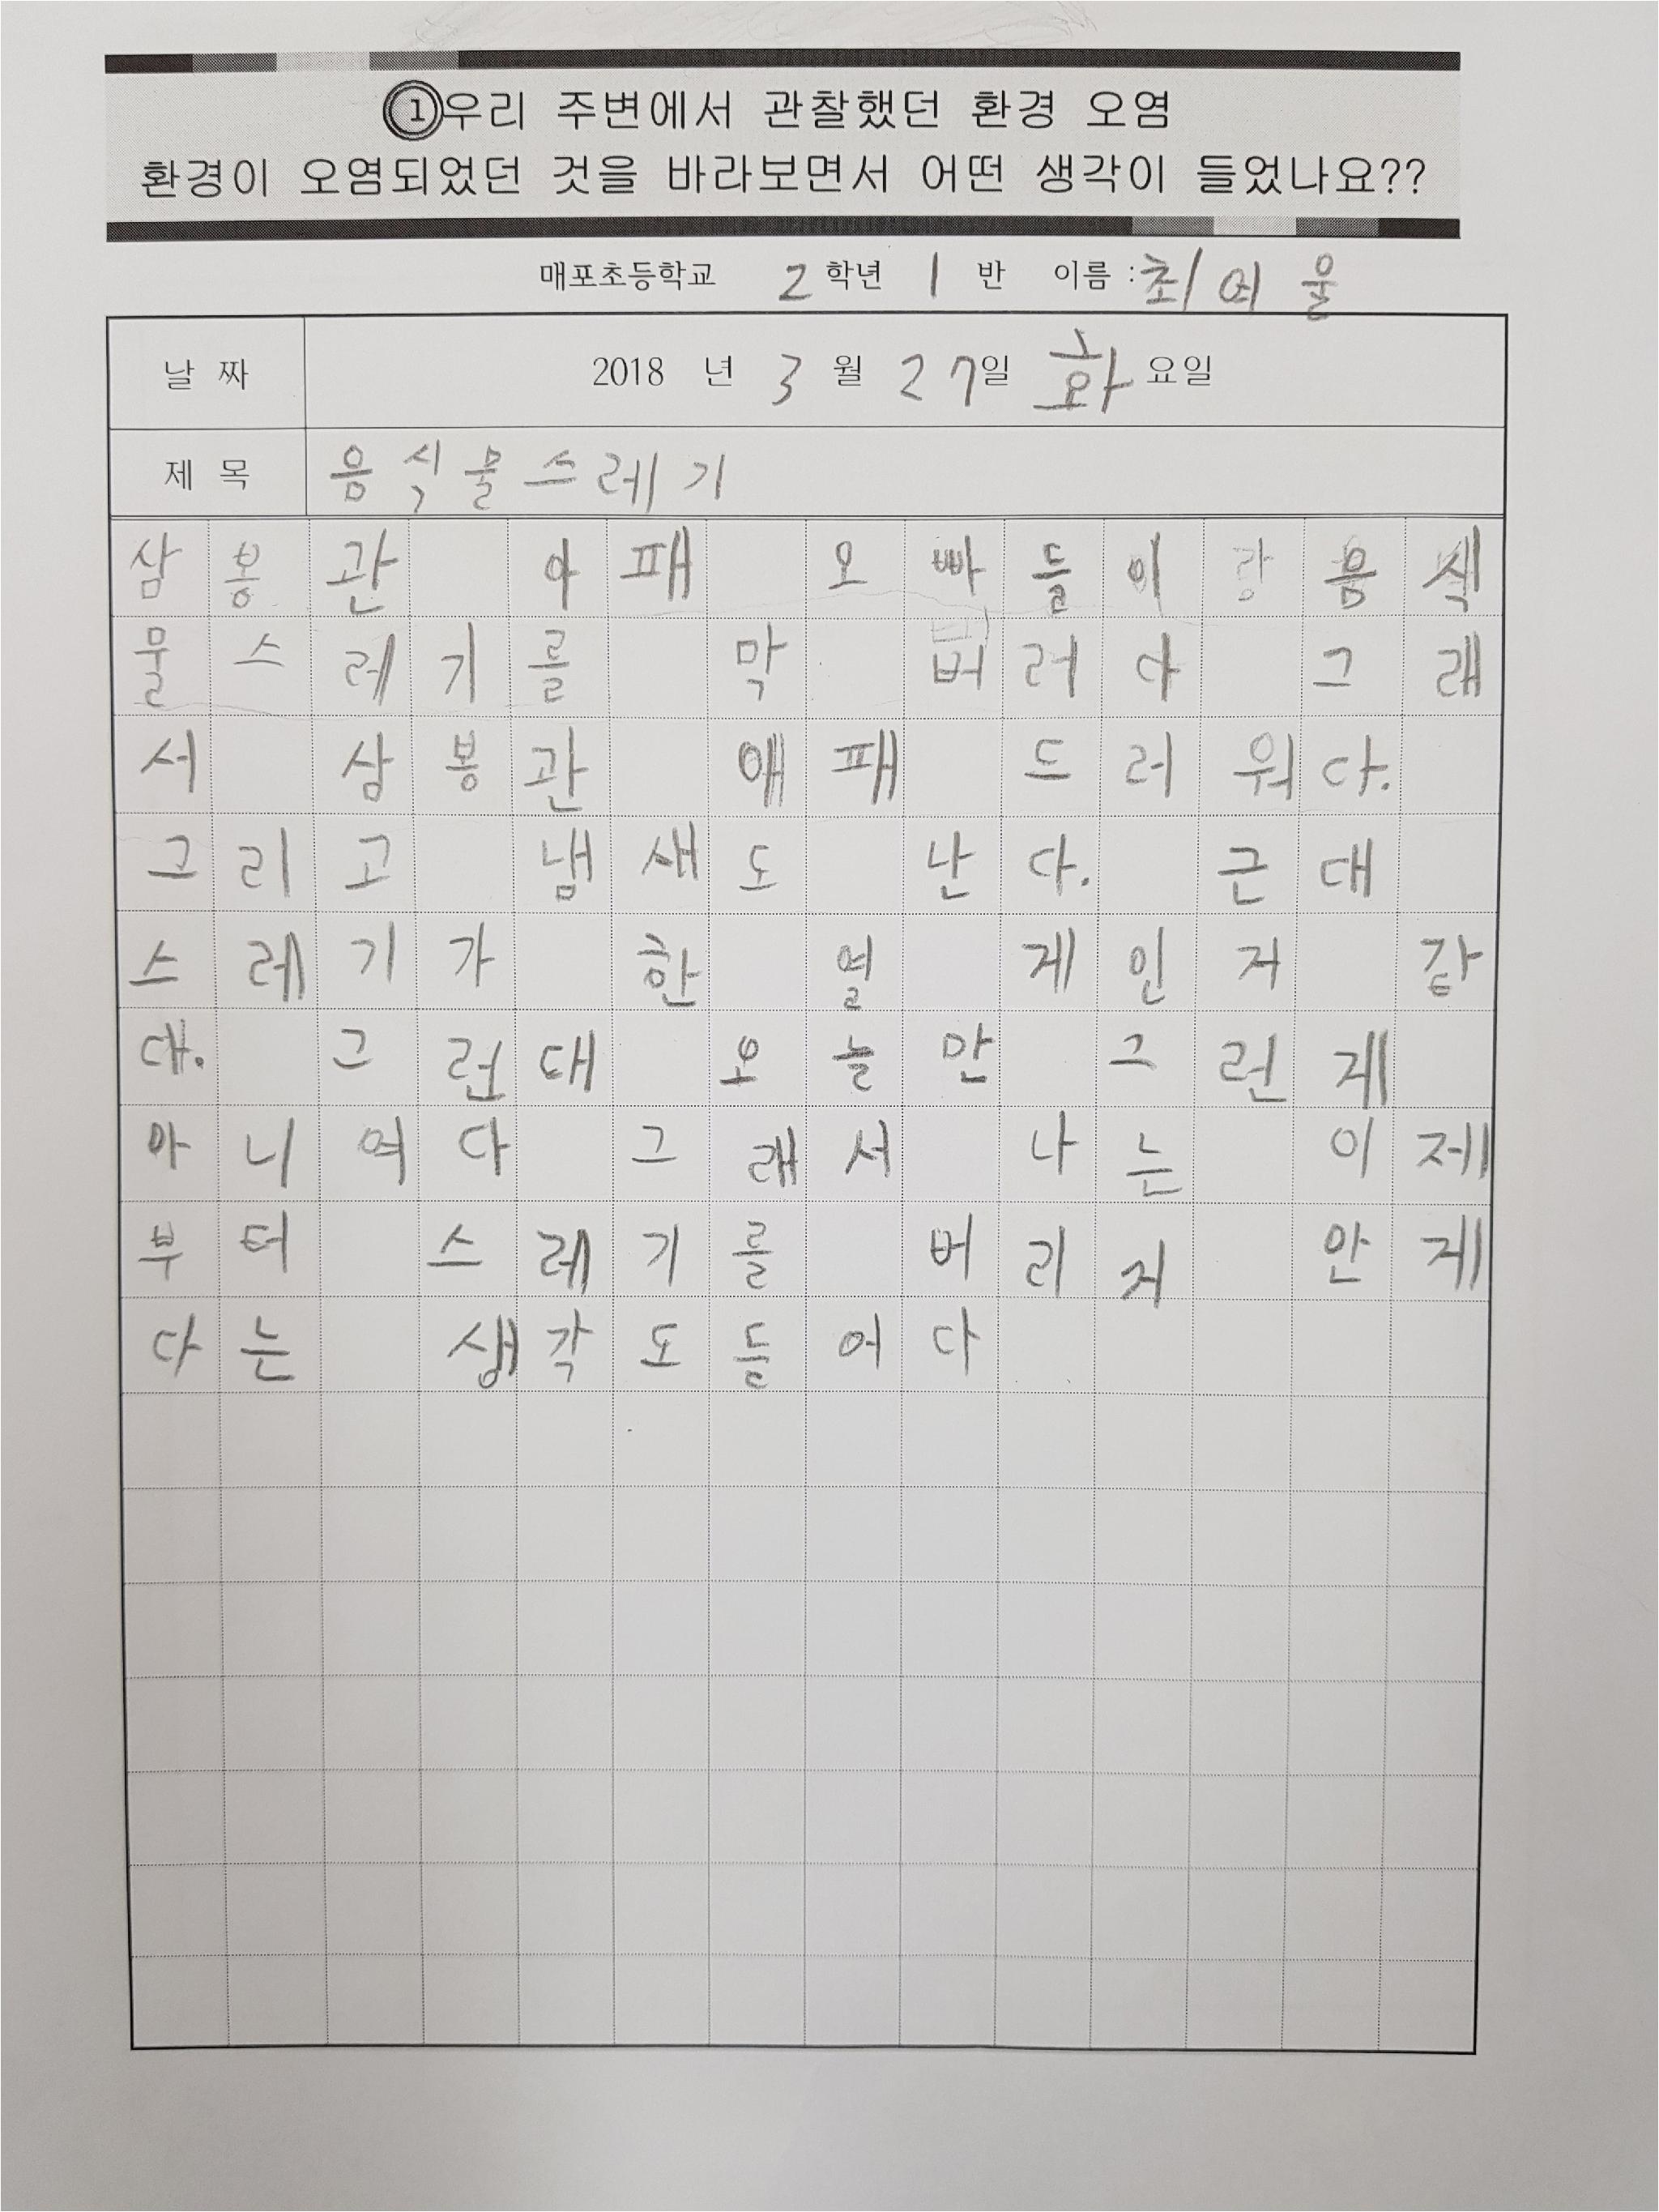 ①우리 주변에서 관찰했던 환경 오염
환경이 오염되었던 것을 바라보면서 어떤 생각이 들었나요??
매포초등학교 2 학년 1 반 이름 : 최여울
날 짜 2018 년 3 월 27일 화 요일
제 목 음식물스레기
삼봉관 아패 오빠들이랑음식
물스레기를 막 버러다 그래
서 삼봉관 애패 드러워다.
그리고 냄새도 난다. 근대
스레기가 한 열 게인저 갑
대. 그런대 오늘만 그런게
아니여다 그래서 나는 이제
부터 스레기를 버리지 안게
다는 생각도들어다